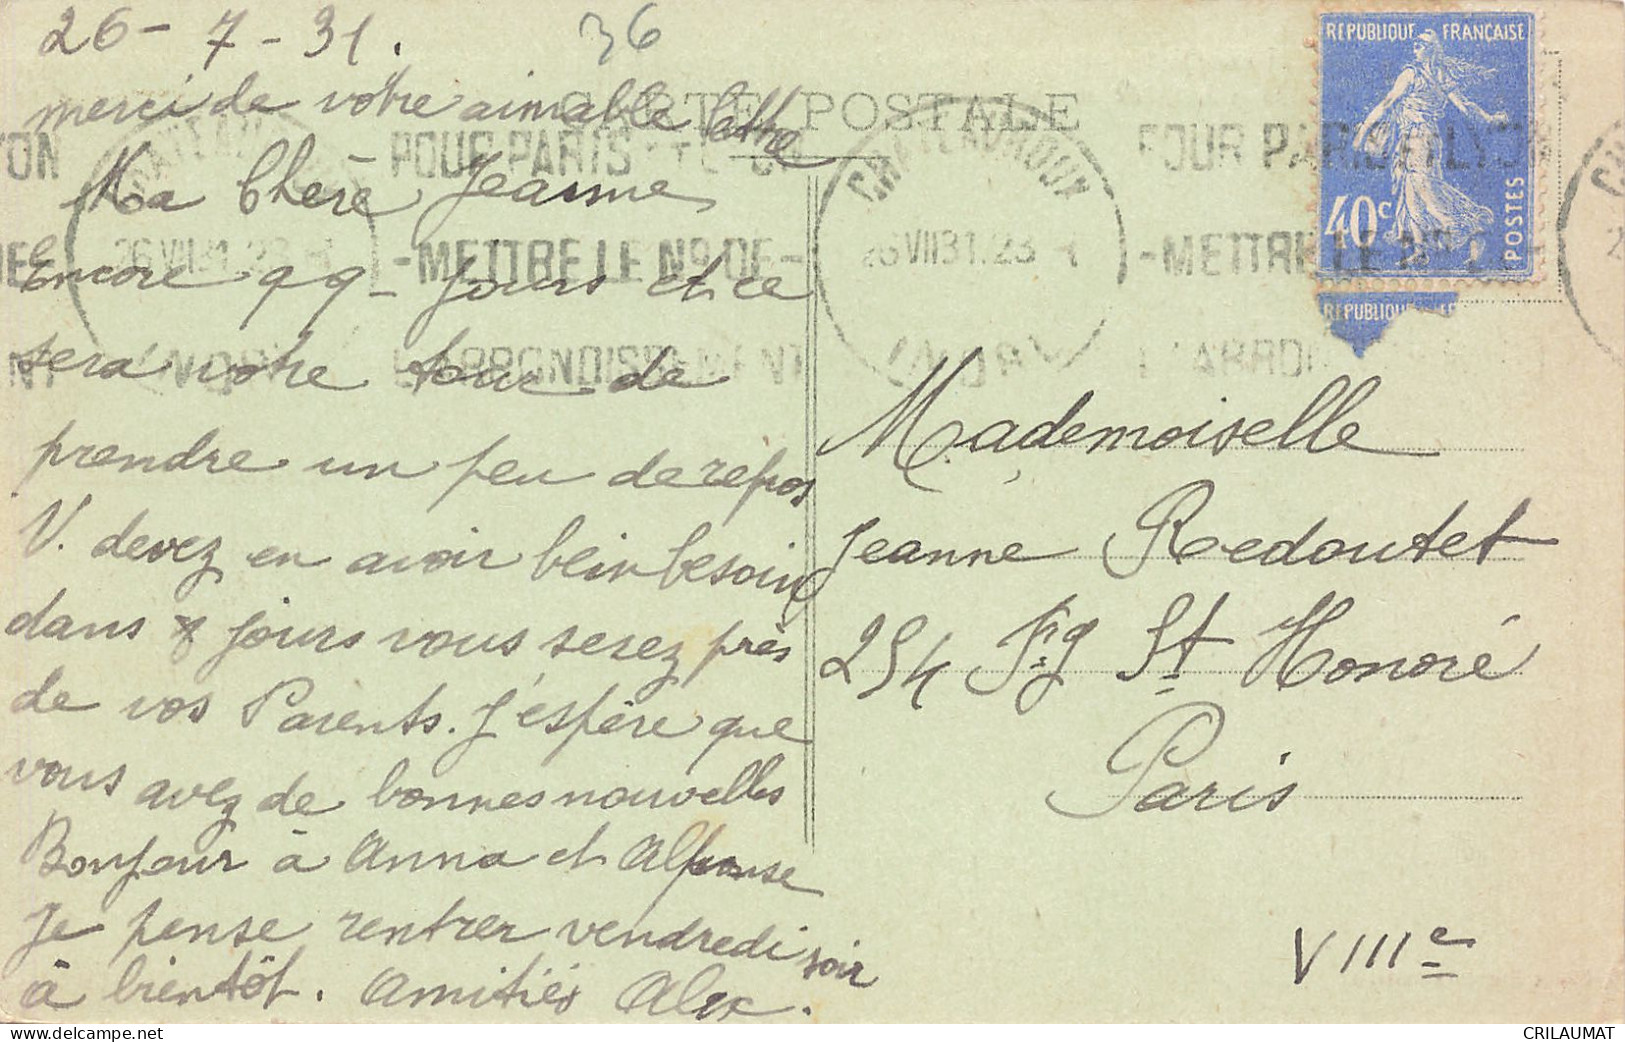 26-7-31.
36
merci de votre aimable lettre
CARTE POSTALE
Ma Chère Jeanne
Encore qq- jours et ce
sera votre tour de
prendre un peu de repos
V. devez en avoir bein besoin
dans 8 jours vous serez près
de vos Parents. J'espère que
vous avez de bonnes nouvelles
Bonjour à Anna et Alfonse
Je pense rentrer vendredi soir
à bientôt. Amitiés Alex.
CHATEAUROUX
26 VII 31. 23
INDRE
POUR PARIS
-METTRE LE Nº DE-
L'ARRONDISSEMENT
CHATEAUROUX
26 VII 31. 23
INDRE
POUR PARIS & LYON
-METTRE LE Nº
L'ARRON
REPUBLIQUE FRANÇAISE
40c
POSTES
REPUBLIQUE
Mademoiselle
Jeanne Redoutet
254 Fg St Honoré
Paris
VIIIe
CRILAUMAT